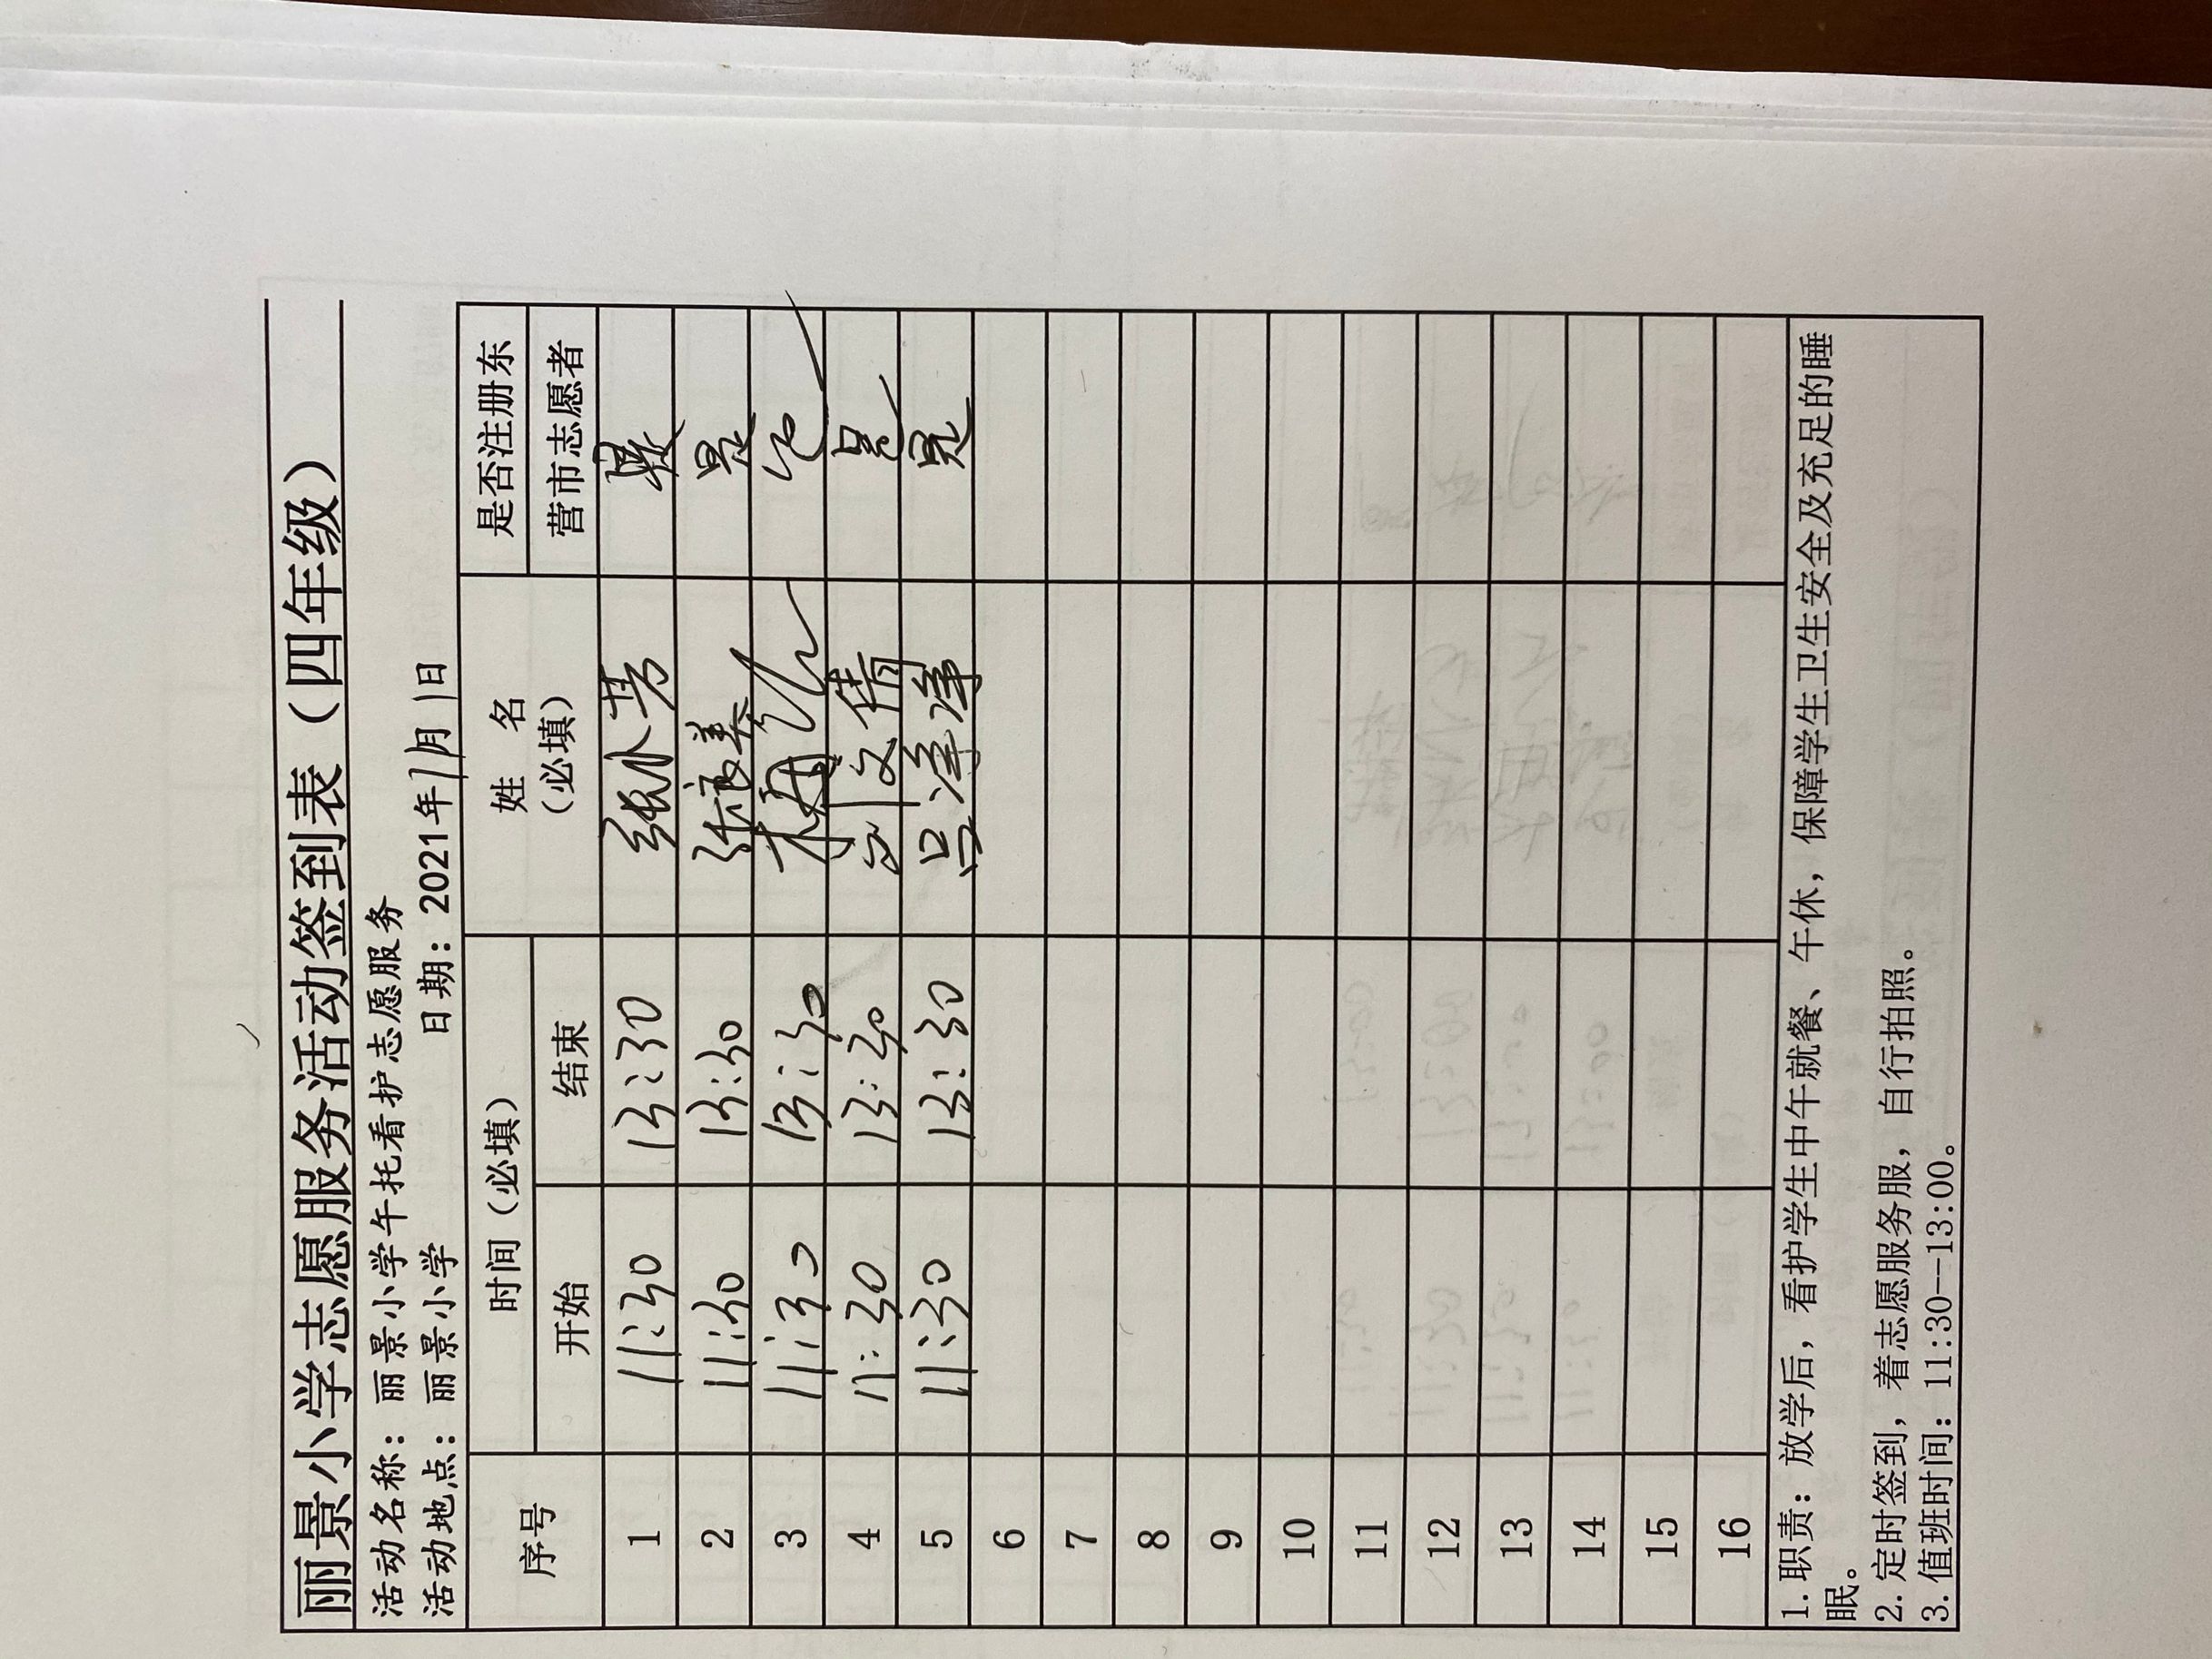 丽景小学志愿服务活动签到表（四年级）
活动名称：丽景小学午托看护志愿服务
活动地点：丽景小学 日期：2021年11月1日
序号 时间（必填） 姓 名（必填） 是否注册东营市志愿者
开始 结束
1 11:30 13:30 是
2 11:30 13:30 是
3 11:30 13:30 是
4 11:30 13:30 文倩 是
5 11:30 13:30 吕净净 是
6
7
8
9
10
11
12
13
14
15
16
1. 职责：放学后，看护学生中午就餐、午休，保障学生卫生安全及充足的睡
眠。
2. 定时签到，着志愿服务服，自行拍照。
3. 值班时间：11:30--13:00。